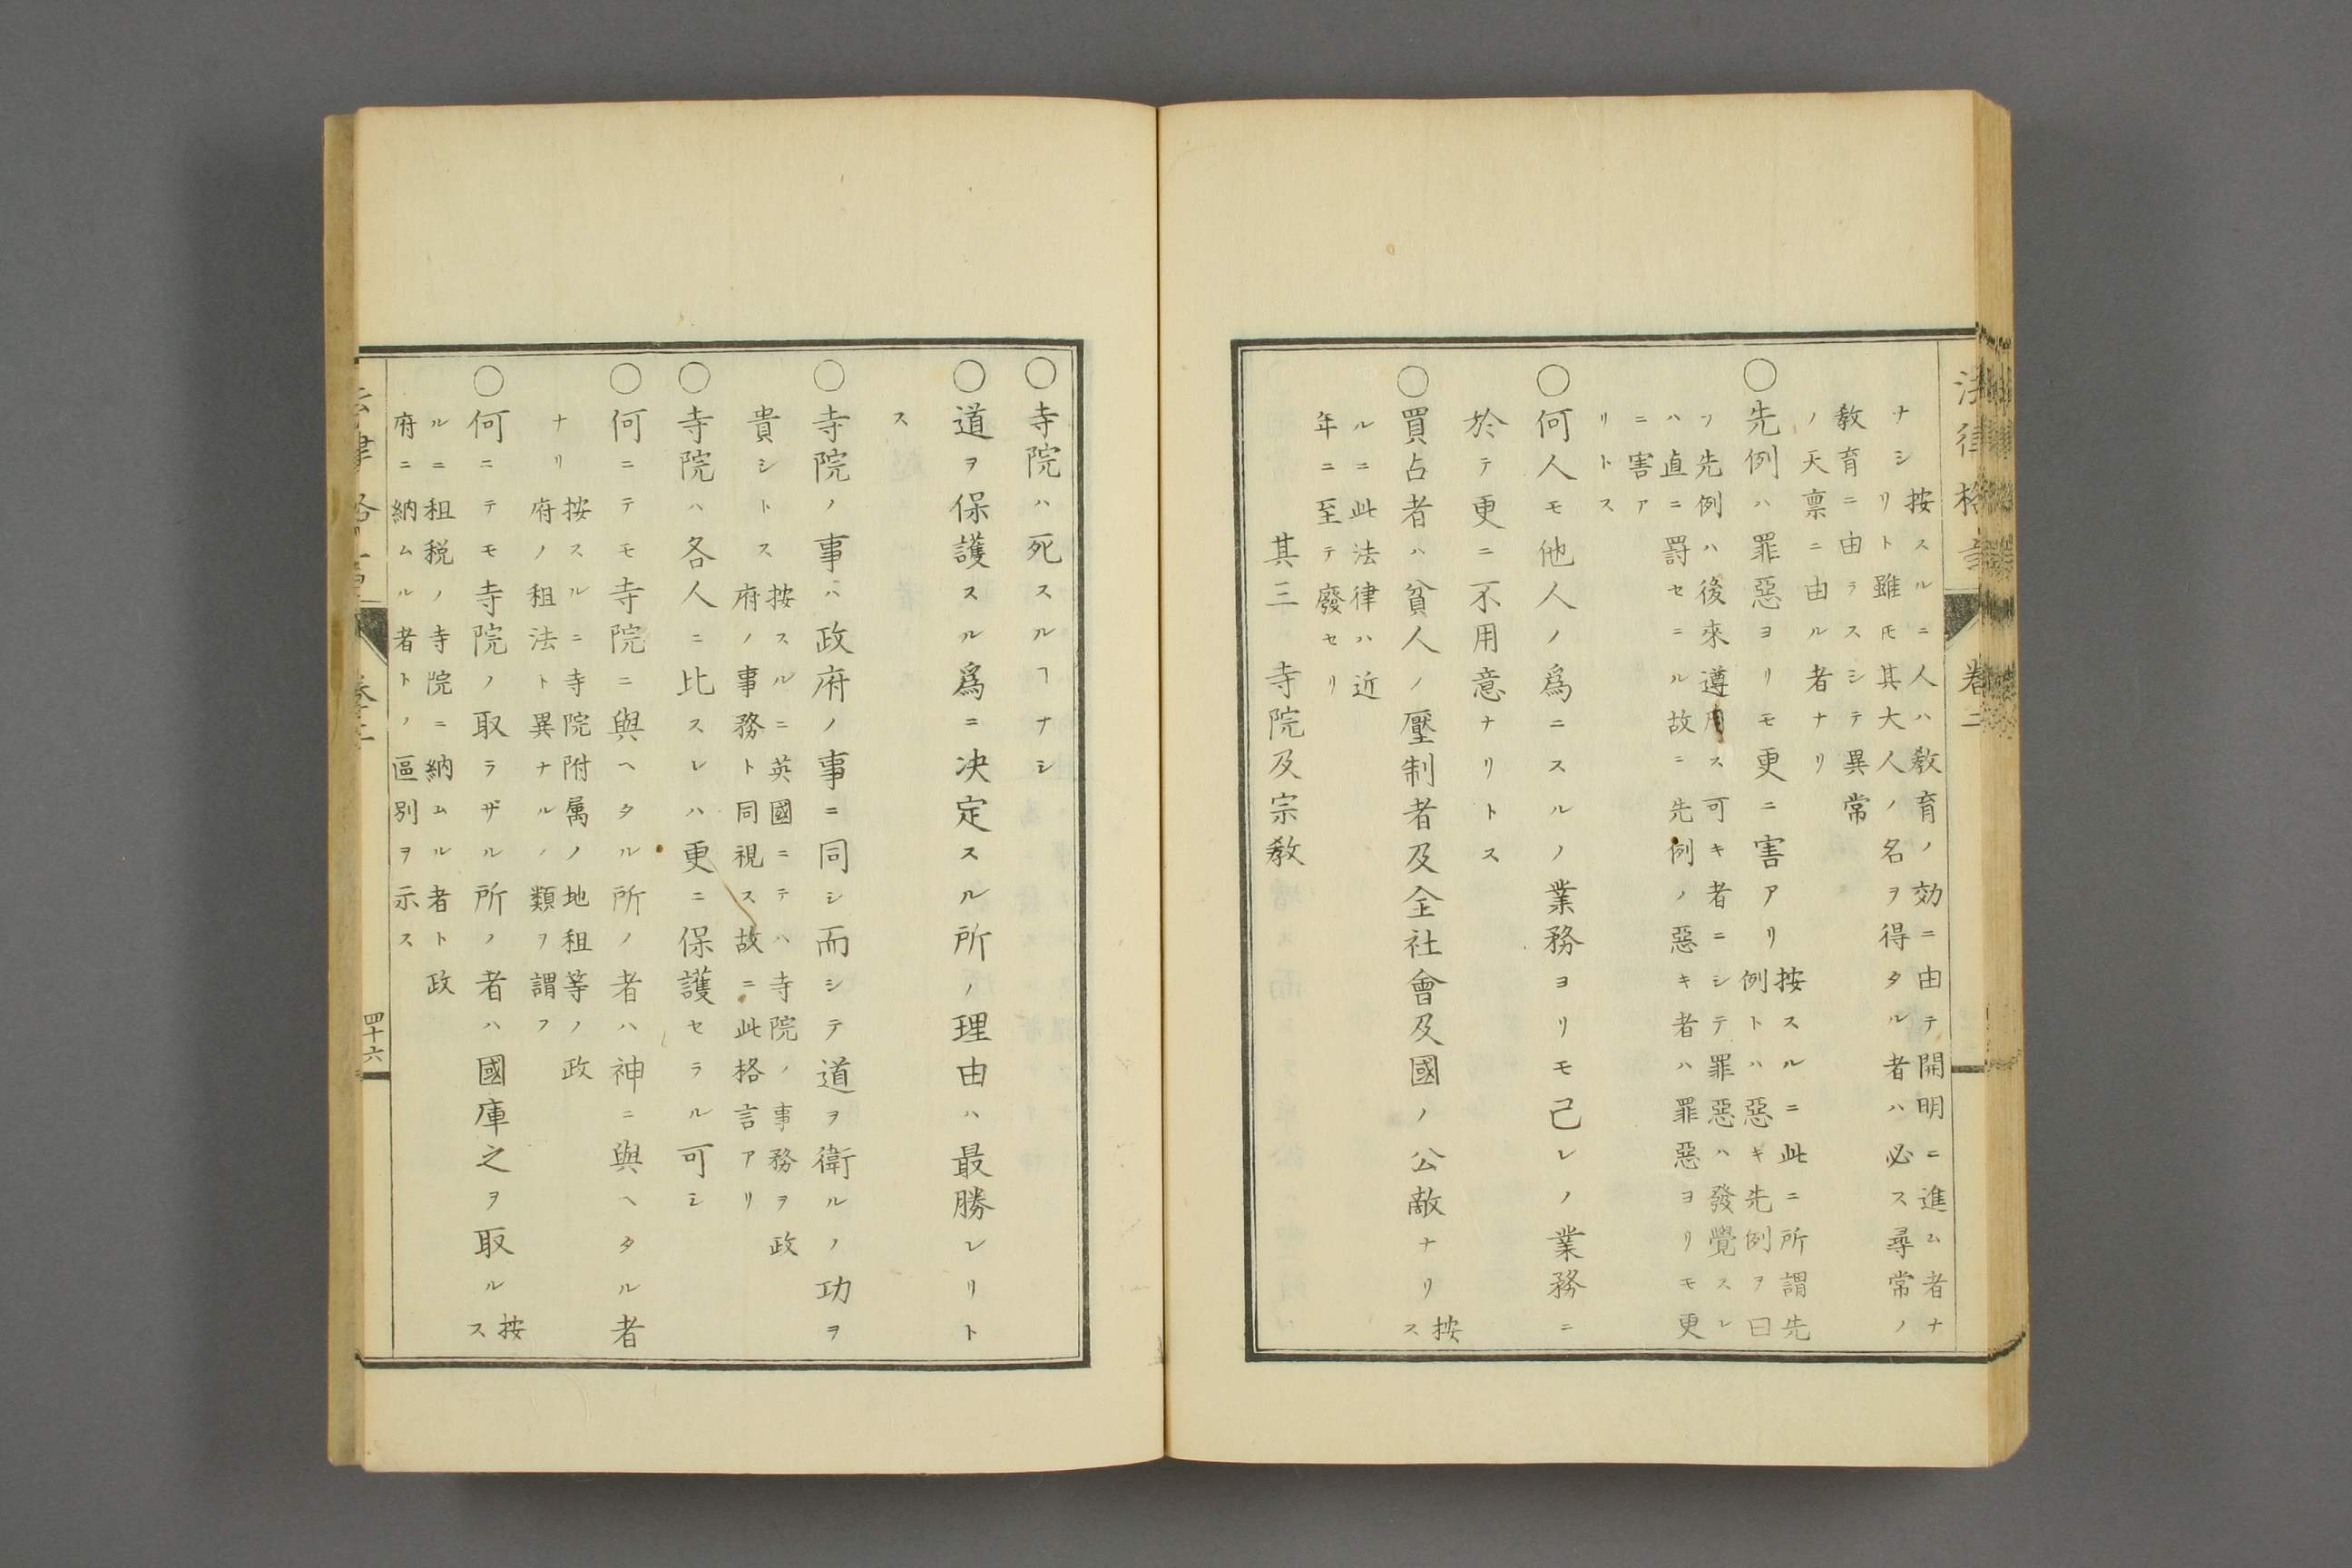 法律格言 卷二
ナシ
按スルニ人ハ教育ノ効ニ由テ開明ニ進ム者ナ
リト雖𪜈其大人ノ名ヲ得タル者ハ必ス尋常ノ
教育ニ由ラスシテ異常
ノ天禀ニ由ル者ナリ
○先例ハ罪惡ヨリモ更ニ害アリ
按スルニ此ニ所謂先
例トハ惡キ先例ヲ曰
フ先例ハ後來遵用ス可キ者ニシテ罪惡ハ發覺スレ
ハ直ニ罰セニル故ニ先例ノ惡キ者ハ罪惡ヨリモ更
ニ害ア
リトス
○何人モ他人ノ爲ニスルノ業務ヨリモ己レノ業務ニ
於テ更ニ不用意ナリトス
○買占者ハ貧人ノ壓制者及全社會及國ノ公敵ナリ
按
ス
ルニ此法律ハ近
年ニ至テ廢セリ
其三 寺院及宗教
○寺院ハ死スルヿナシ
○道ヲ保護スル爲ニ决定スル所ノ理由ハ最勝レリト
ス
○寺院ノ事ハ政府ノ事ニ同シ而シテ道ヲ衛ルノ功ヲ
貴シトス
按スルニ英國ニテハ寺院ノ事務ヲ政
府ノ事務ト同視ス故ニ此格言アリ
○寺院ハ各人ニ比スレハ更ニ保護セラル可シ
○何ニテモ寺院ニ與ヘタル所ノ者ハ神ニ與ヘタル者
ナリ
按スルニ寺院附属ノ地租等ノ政
府ノ租法ト異ナルノ類ヲ謂フ
○何ニテモ寺院ノ取ラザル所ノ者ハ國庫之ヲ取ル
按
ス
ルニ租税ノ寺院ニ納ムル者ト政
府ニ納ムル者トノ區別ヲ示ス
四十六